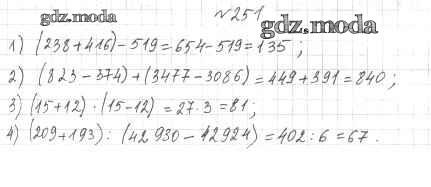 gdz.moda
№251
gdz.moda
1) (238+416)-519=654-519=135;
2) (823-374)+(3477-3086)=449+391=840;
3) (15+12)·(15-12)=27·3=81;
4) (209+193):(42930-42924)=402:6=67.